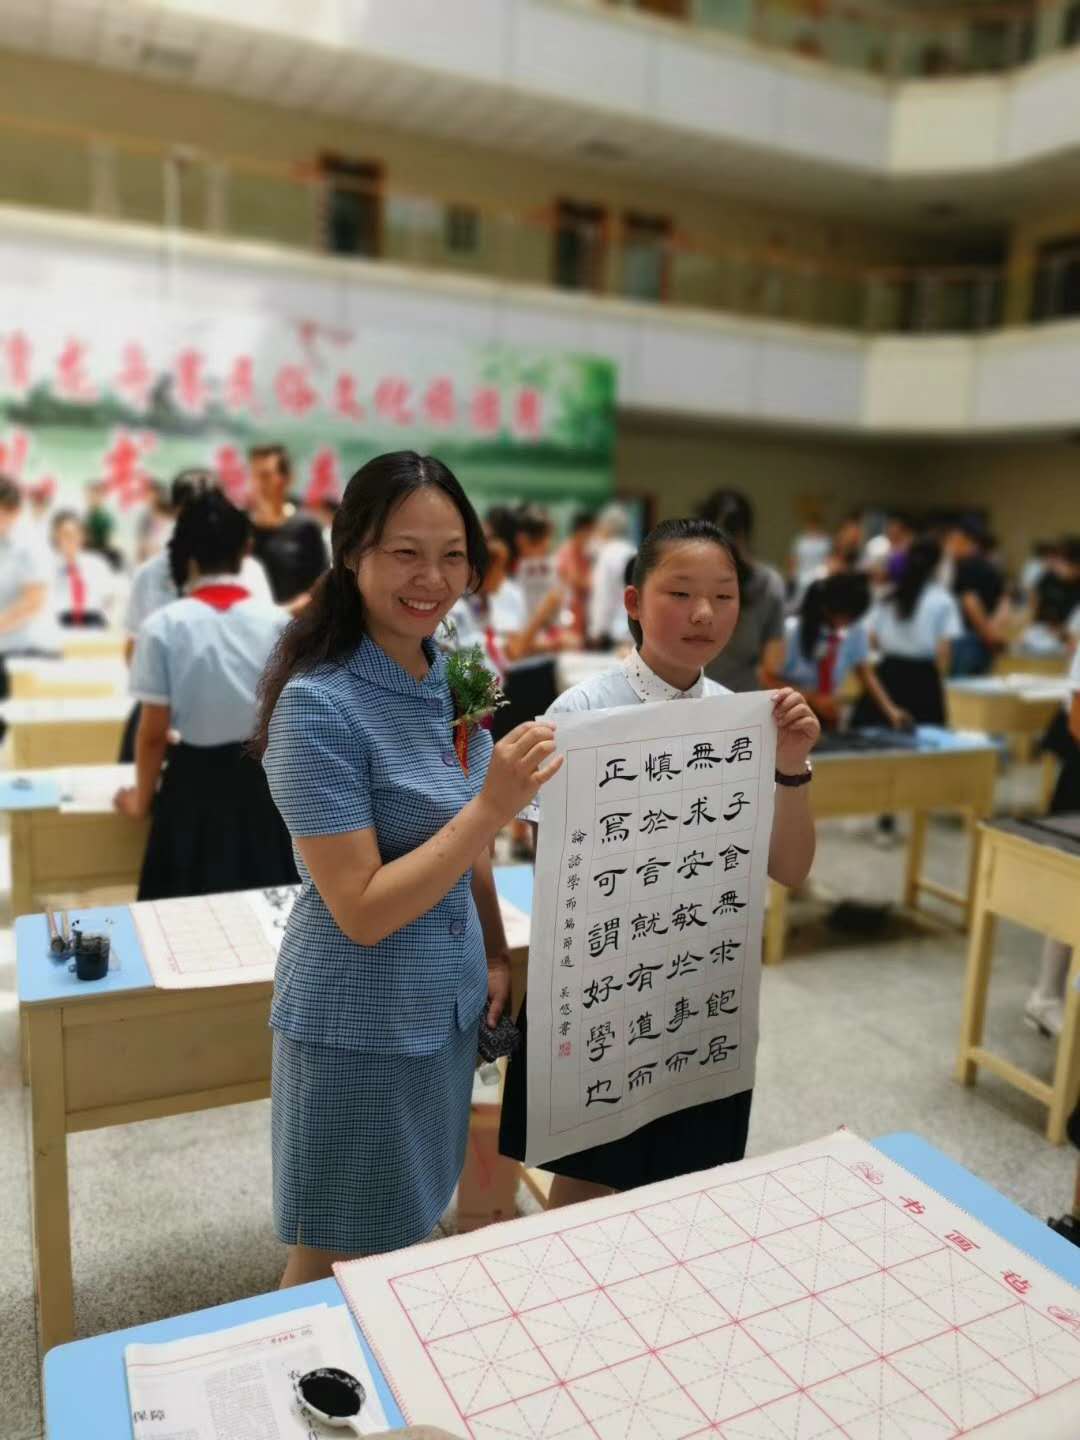 君子食無求飽居
無求安敏於事而
慎於言就有道而
正焉可謂好學也
論語學而篇節選 吳悠書
民俗文化
书
书画毡
保障